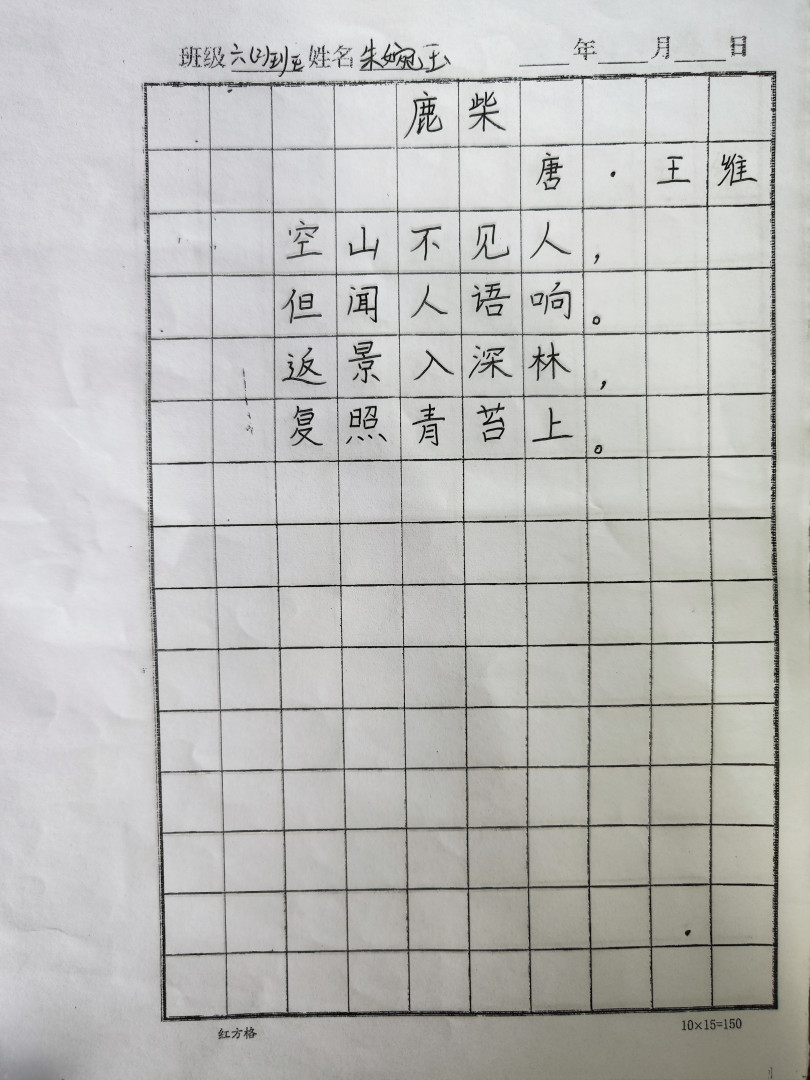 班级六(2)班 姓名朱婉玉 年 月 日
鹿柴
唐·王维
空山不见人，
但闻人语响。
返景入深林，
复照青苔上。
红方格 10×15=150